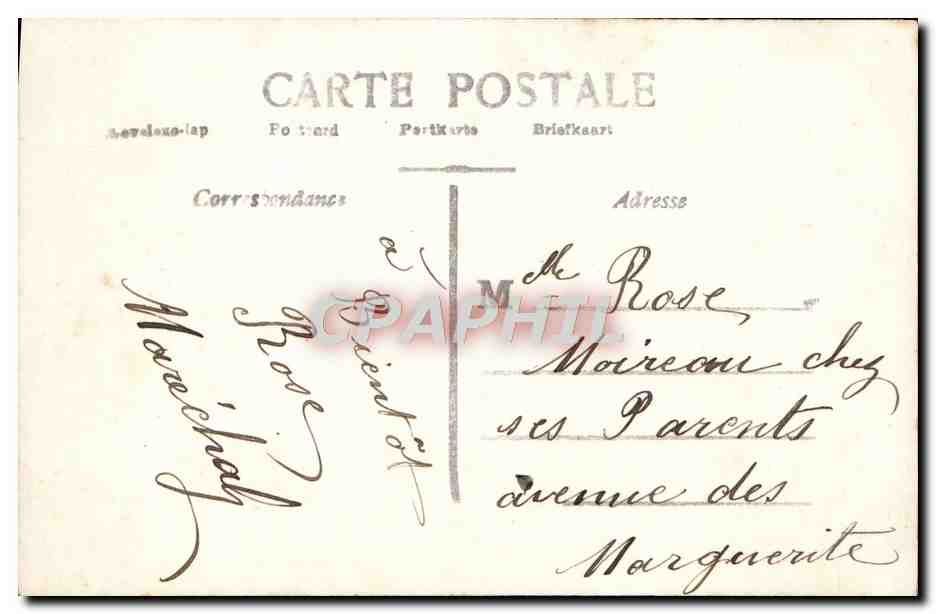 CARTE POSTALE
Levelezo-lap Postcard Postkarte Briefkaart
Correspondance
Adresse
à Bientôt
Rose
Maréchal
Mlle Rose
Moireau chez
ses Parents
avenue des
Marguerite
CPAPHIL